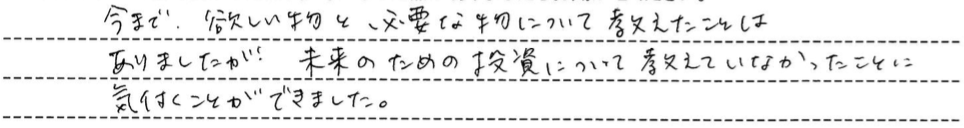 今まで、欲しい物と、必要な物について教えたことは
ありましたが、未来のための投資について教えていなかったことに
気付くことができました。